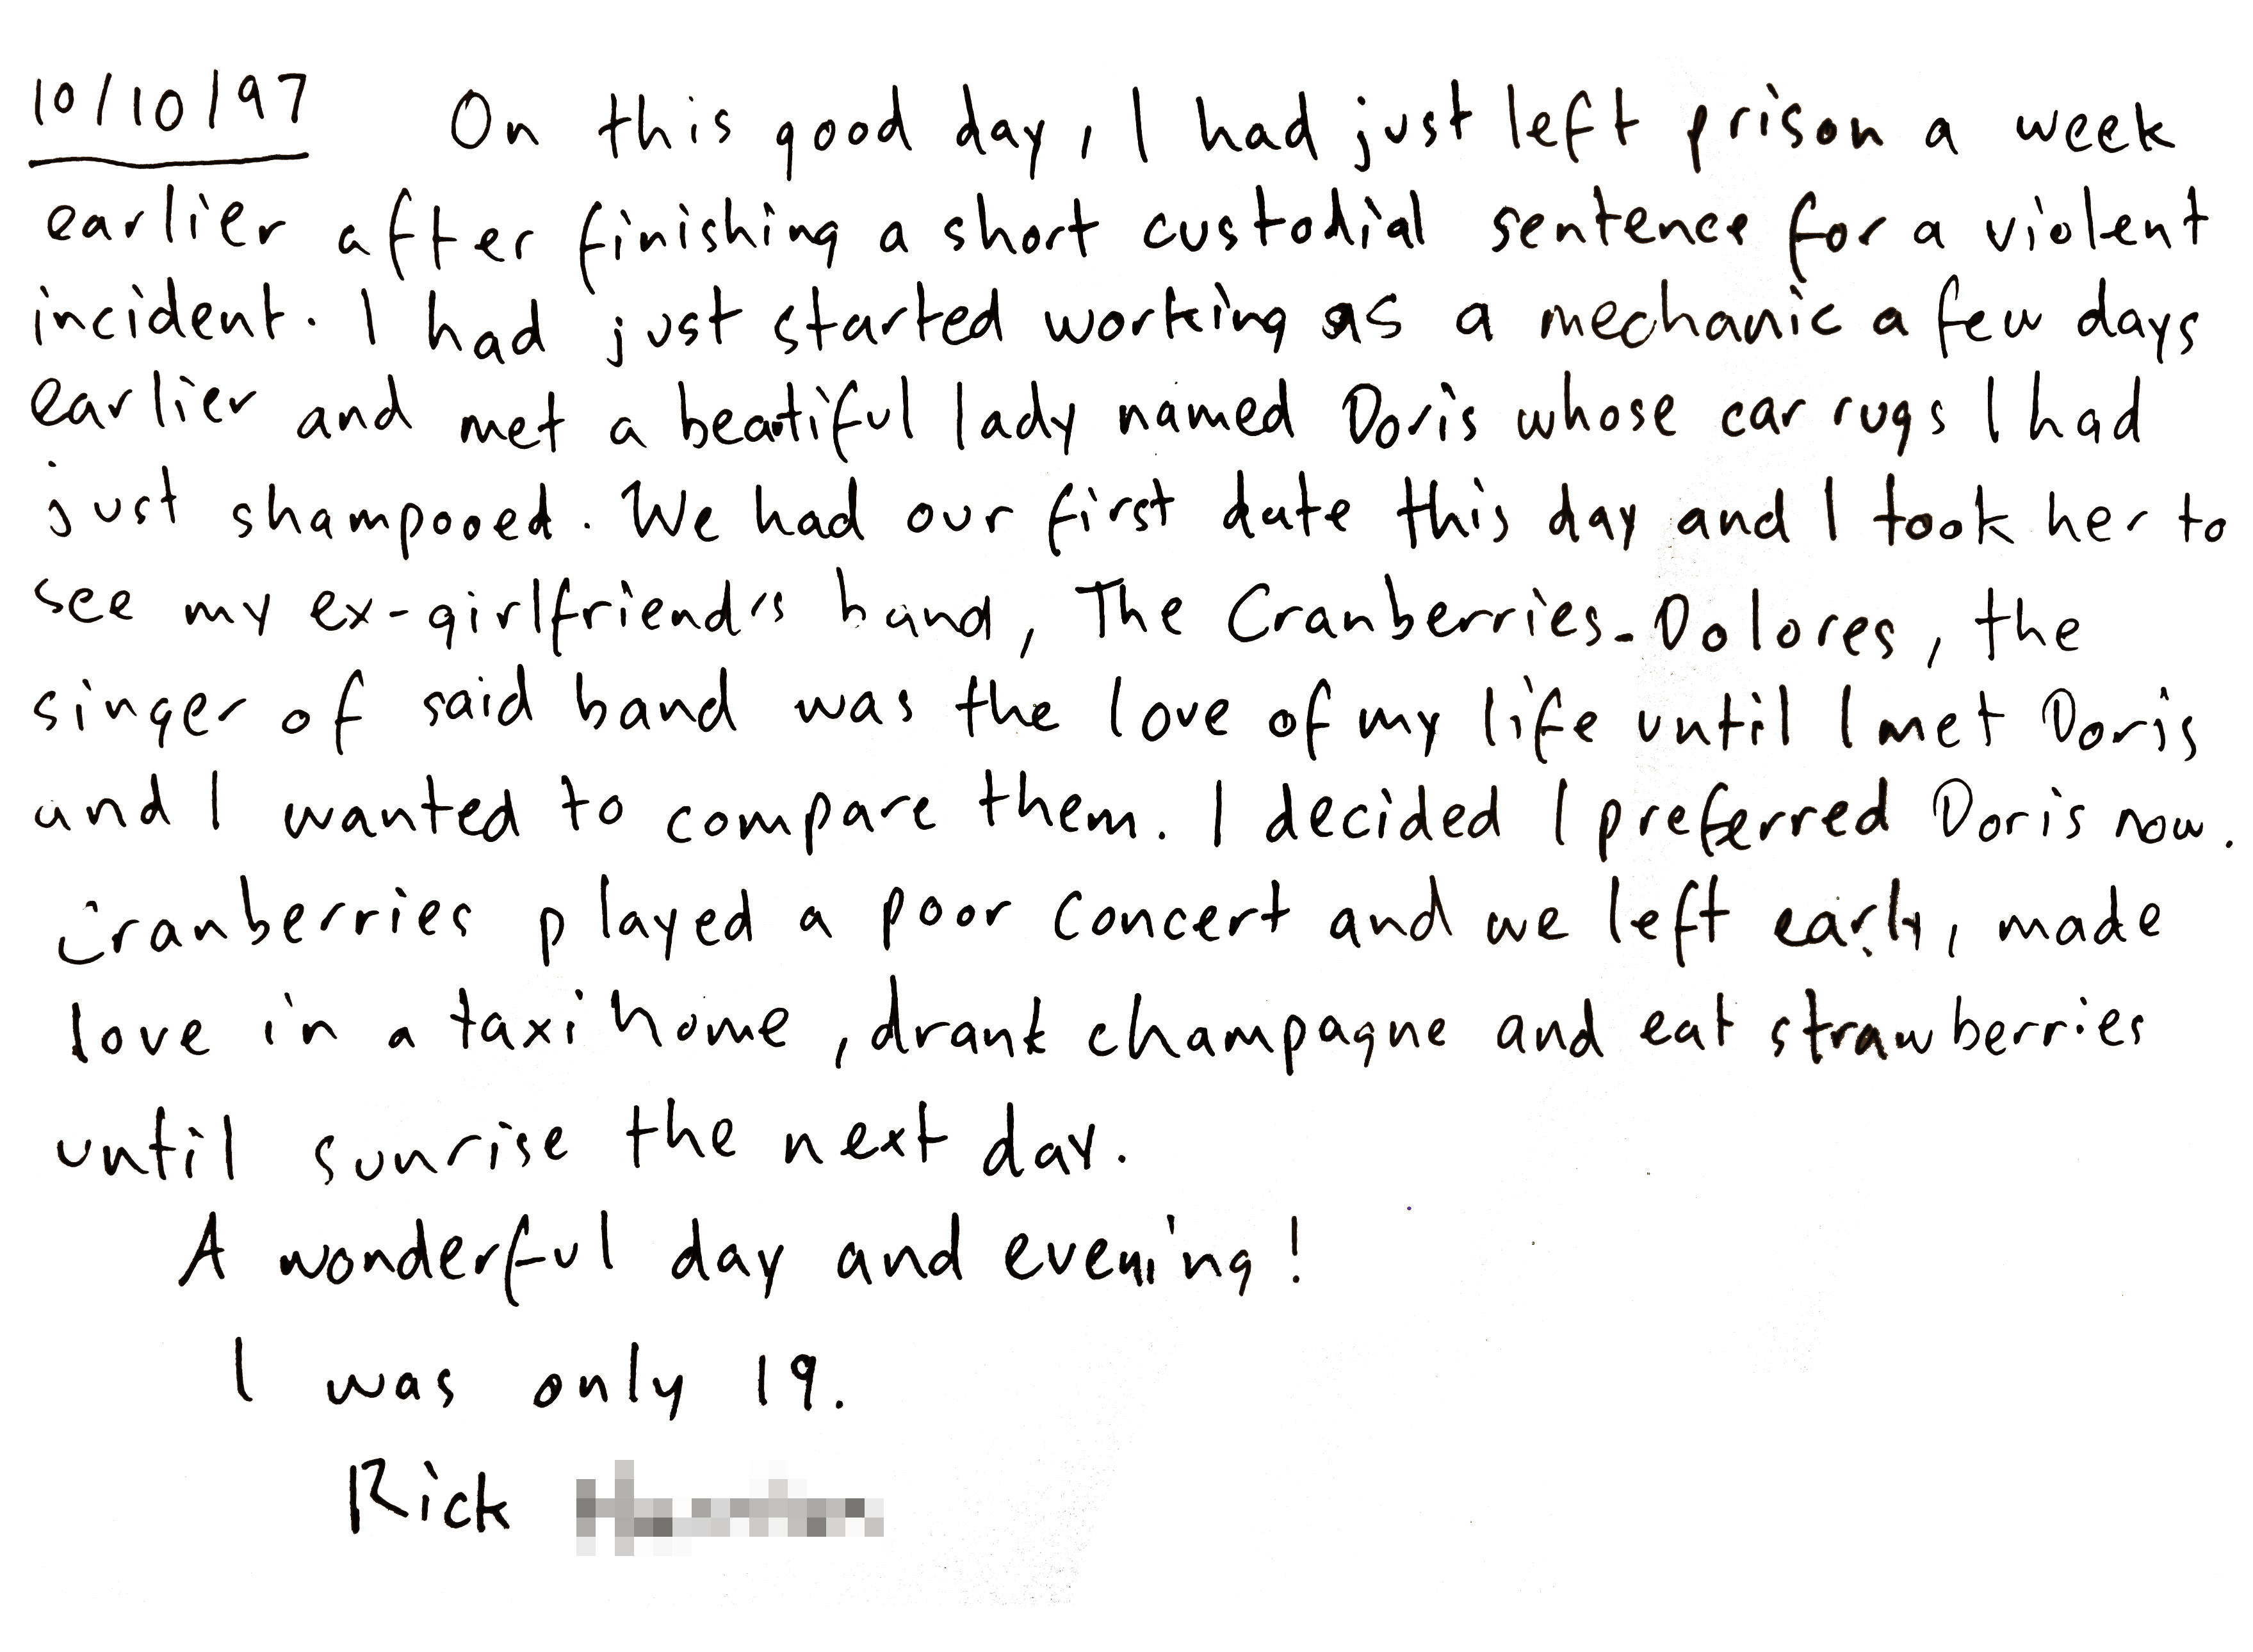 10/10/97 On this good day, I had just left prison a week
earlier after finishing a short custodial sentence for a violent
incident. I had just started working as a mechanic a few days
earlier and met a beatiful lady named Doris whose car rugs I had
just shampooed. We had our first date this day and I took her to
see my ex-girlfriend's band, The Cranberries - Dolores, the
singer of said band was the love of my life until I met Doris
and I wanted to compare them. I decided I preferred Doris now.
Cranberries played a poor concert and we left early, made
love in a taxi home, drank champagne and eat strawberries
until sunrise the next day.
A wonderful day and evening!
I was only 19.
Rick